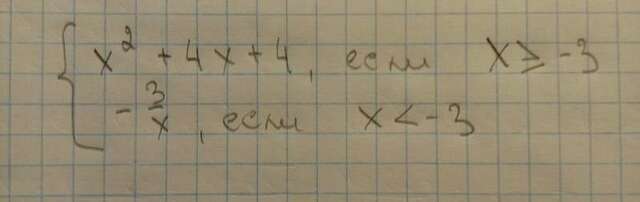 x² + 4x + 4, если x ≥ -3
- 3/x, если x < -3